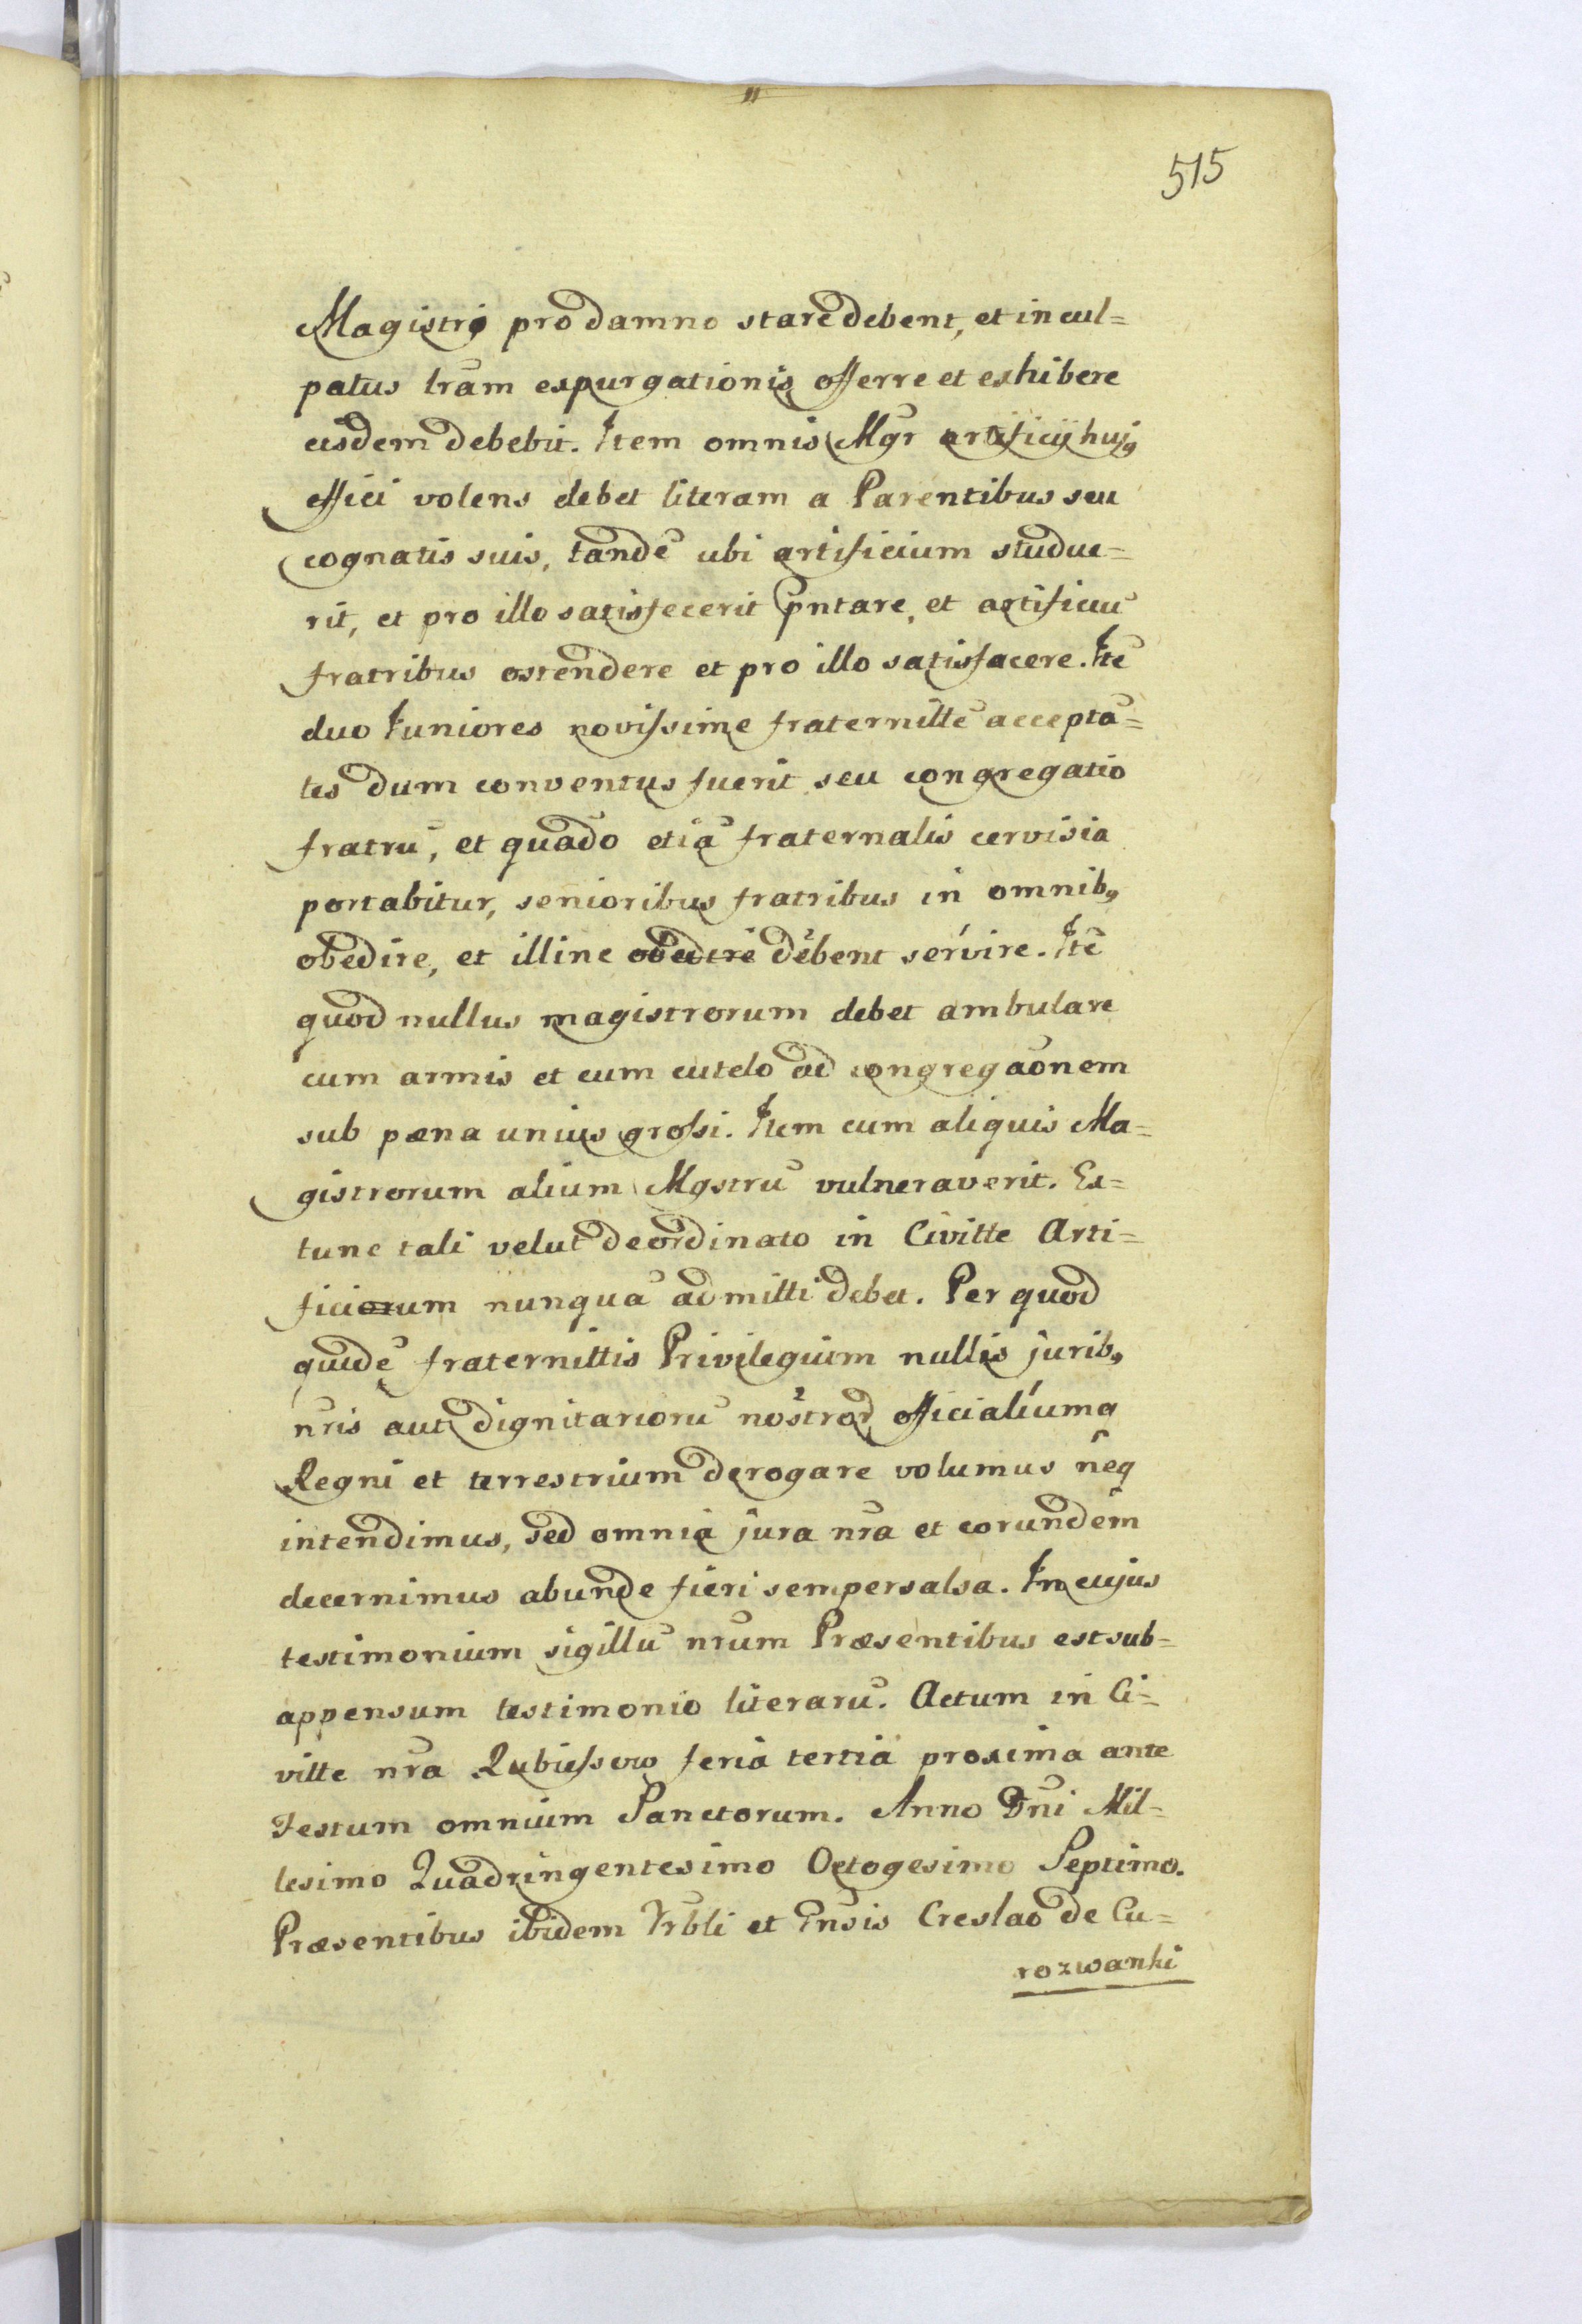 515
Magistri pro damno stare debent, et incul=
patus lram expurgationis offerre et exhibere
eisdem debebit. Item omnis Mgr artificij huj9
effici volens debet literam a Parentibus seu
cognatis suis, tandē ubi artificium studue=
rit, et pro illo satisfecerit pntare, et artificiū
fratribus ostendere et pro illo satisfacere. Itē
duo Juniores novissime fraternittē acceptā=
tes dum conventus fuerit seu congregatio
fratrū, et quādo etiā fraternalis cervisia
portabitur, senioribus fratribus in omnib9
obedire, et illinc obedire debent servire. Itē
quod nullus magistrorum debet ambulare
cum armis et cum cutelo ad congregaōnem
sub pœna unius grossi. Item cum aliquis Ma=
gistrorum alium Mgstrū vulneraverit. Ex=
tunc tali velut deordinato in Civitte Arti=
ficiorum nunquā admitti debet. Per quod
quidē fraternittis Privilegium nullis jurib9
nris aut dignitariorū nostror officialiumq
Regni et terrestrium derogare volumus neq
intendimus, sed omnia jura nra et eorundem
decernimus abunde fieri semper salsa. In cujus
testimonium sigillū nrum Præsentibus est sub=
appensum testimonio literarū. Actum in Ci=
vitte nra Lubiessow feria tertia proxima ante
Festum omnium Sanctorum. Anno Dni Mil=
lesimo Quadringentesimo Octogesimo Septimo.
Præsentibus ibidem Vrbli et Gnsis Creslao de Cu=
rozwanki